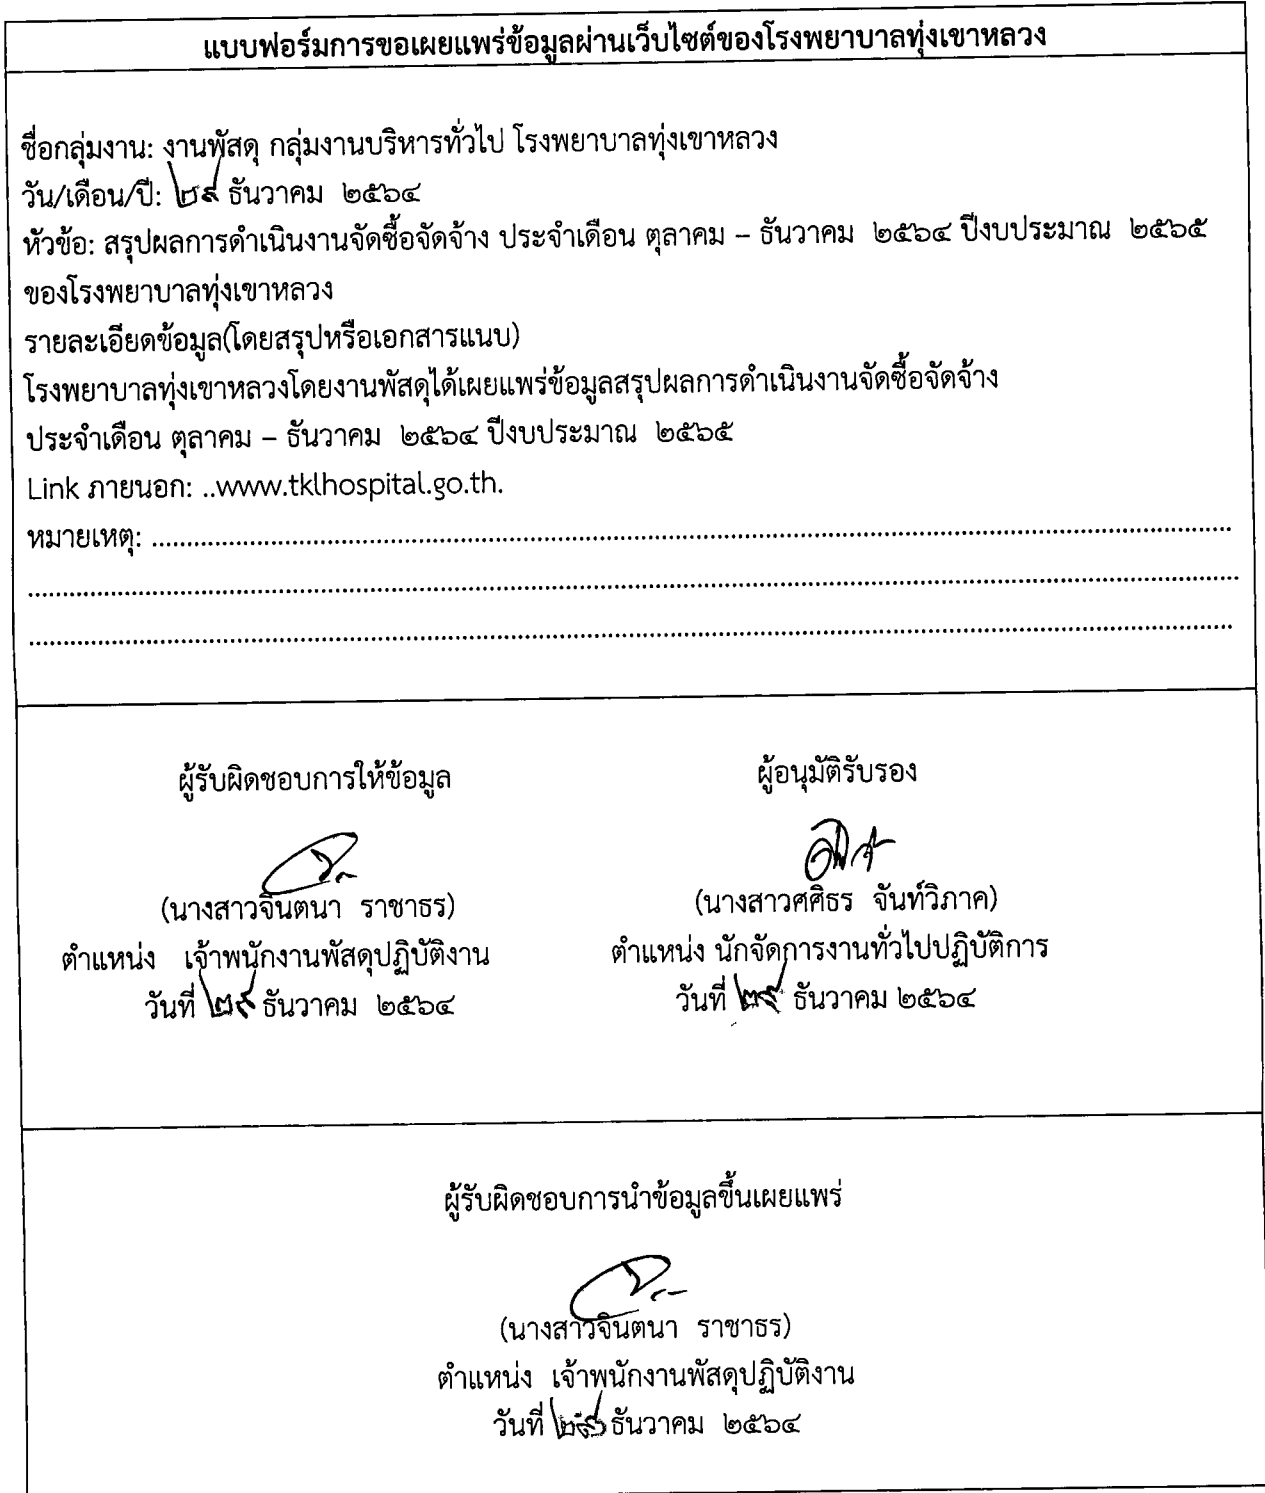 แบบฟอร์มการขอเผยแพร่ข้อมูลผ่านเว็บไซต์ของโรงพยาบาลทุ่งเขาหลวง
ชื่อกลุ่มงาน: งานพัสดุ กลุ่มงานบริหารทั่วไป โรงพยาบาลทุ่งเขาหลวง
วัน/เดือน/ปี: ๒๙ ธันวาคม ๒๕๖๔
หัวข้อ: สรุปผลการดำเนินงานจัดซื้อจัดจ้าง ประจำเดือน ตุลาคม – ธันวาคม ๒๕๖๔ ปีงบประมาณ ๒๕๖๕
ของโรงพยาบาลทุ่งเขาหลวง
รายละเอียดข้อมูล(โดยสรุปหรือเอกสารแนบ)
โรงพยาบาลทุ่งเขาหลวงโดยงานพัสดุได้เผยแพร่ข้อมูลสรุปผลการดำเนินงานจัดซื้อจัดจ้าง
ประจำเดือน ตุลาคม – ธันวาคม ๒๕๖๔ ปีงบประมาณ ๒๕๖๕
Link ภายนอก: ..www.tklhospital.go.th.
หมายเหตุ: ........................................................................
ผู้รับผิดชอบการให้ข้อมูล
(นางสาวจินตนา ราชาธร)
ตำแหน่ง เจ้าพนักงานพัสดุปฏิบัติงาน
วันที่ ๒๙ ธันวาคม ๒๕๖๔
ผู้อนุมัติรับรอง
(นางสาวศศิธร จันท์วิภาค)
ตำแหน่ง นักจัดการงานทั่วไปปฏิบัติการ
วันที่ ๒๙ ธันวาคม ๒๕๖๔
ผู้รับผิดชอบการนำข้อมูลขึ้นเผยแพร่
(นางสาวจินตนา ราชาธร)
ตำแหน่ง เจ้าพนักงานพัสดุปฏิบัติงาน
วันที่ ๒๙ ธันวาคม ๒๕๖๔